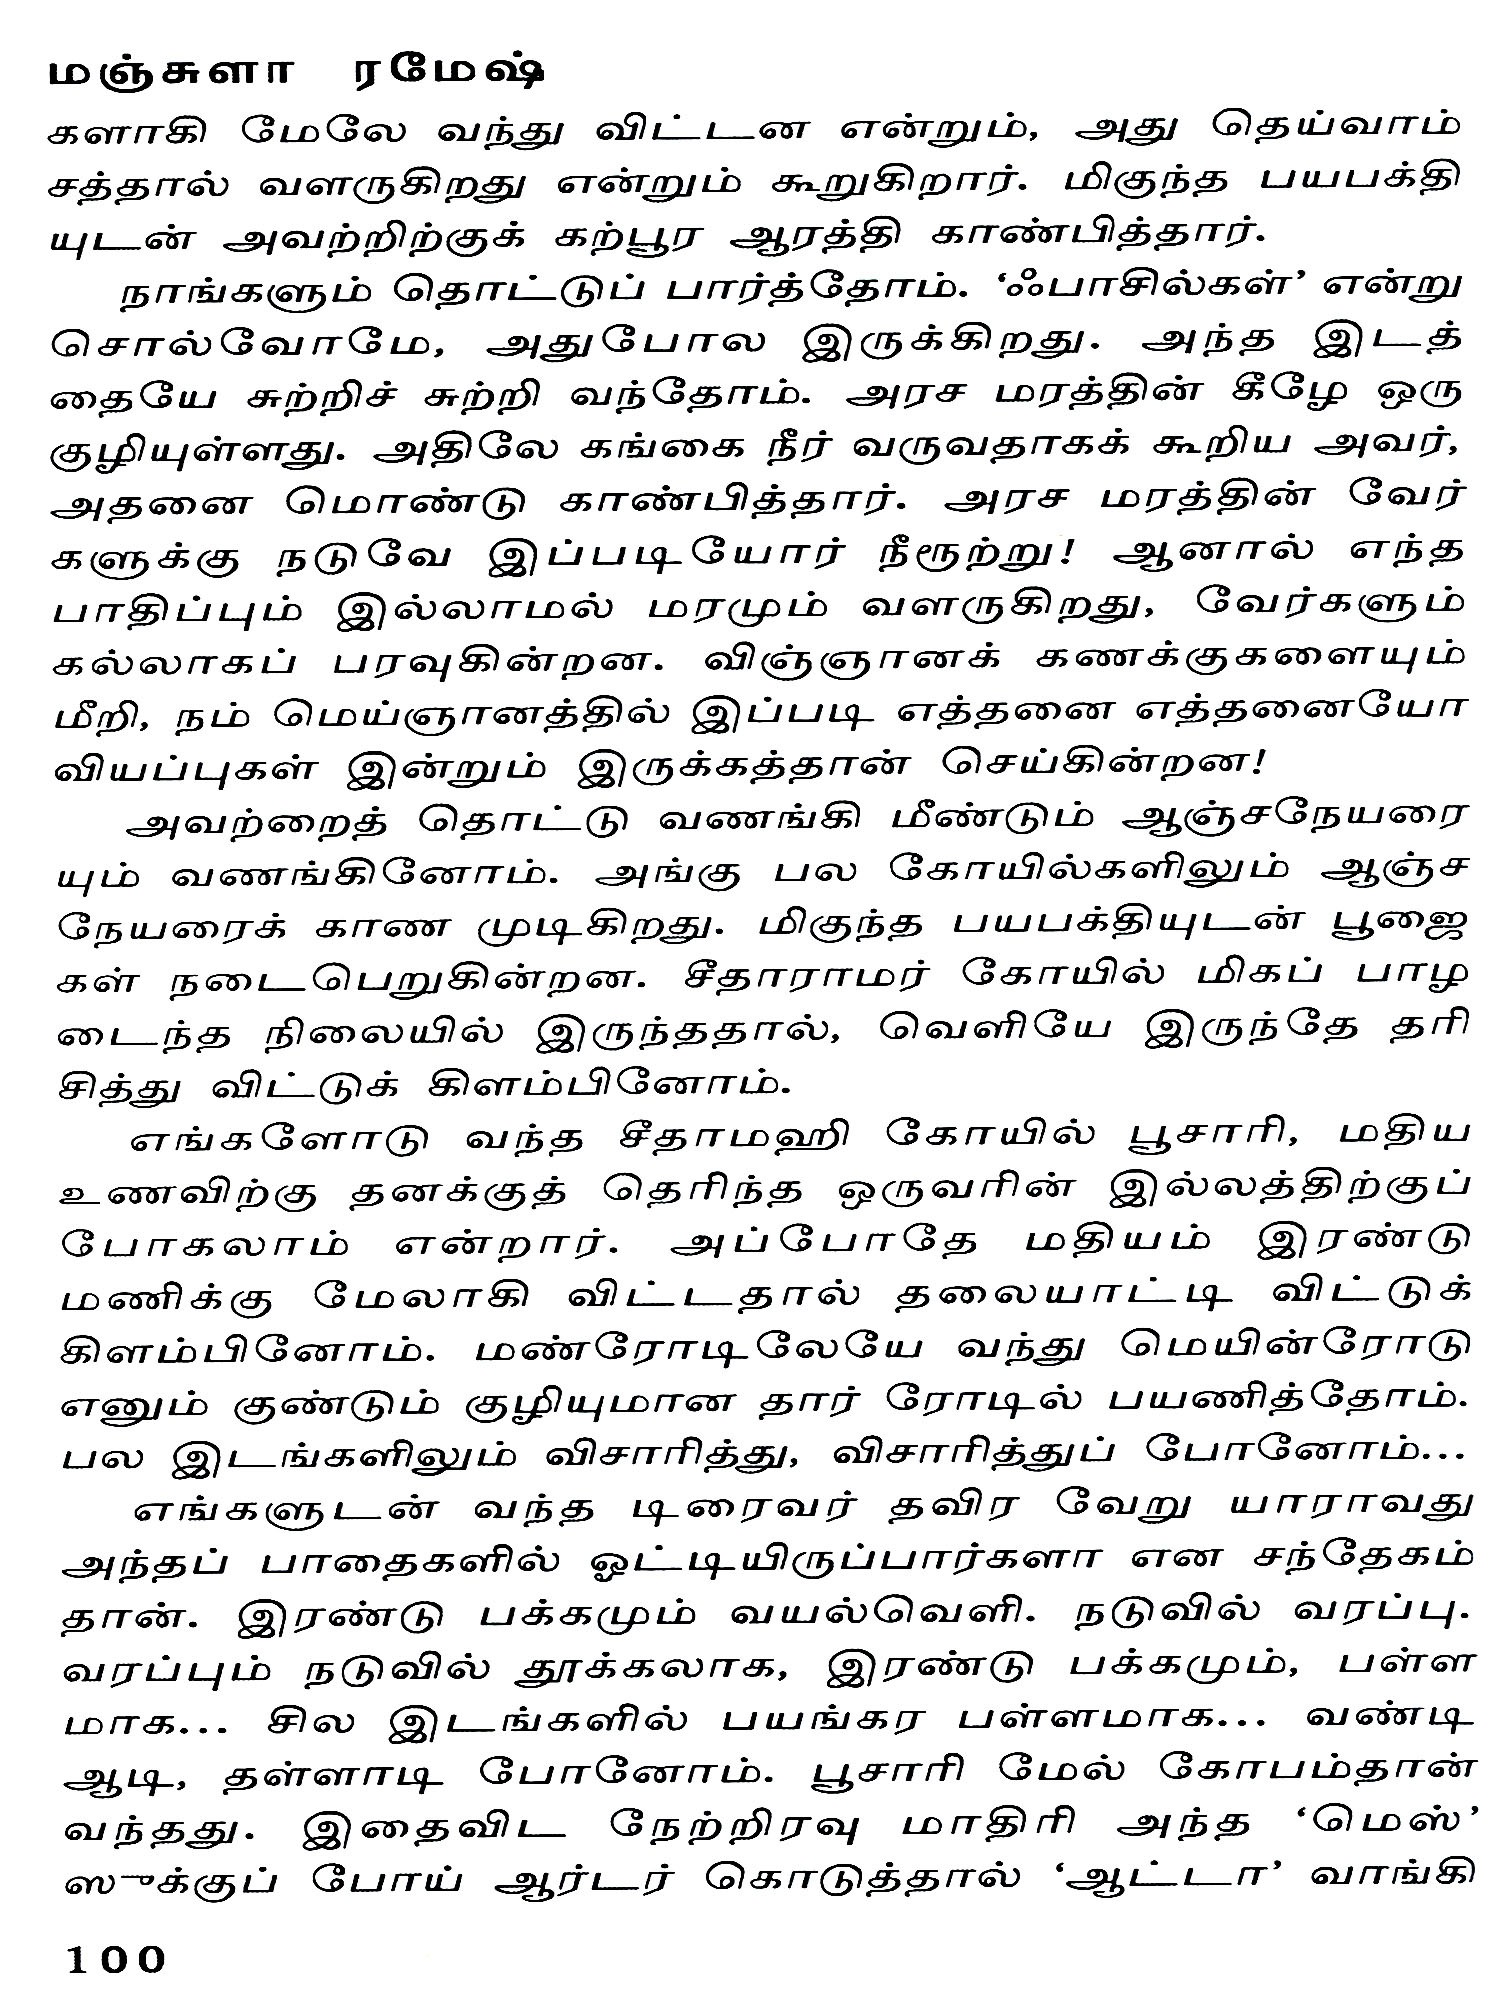 மஞ்சுளா ரமேஷ்
களாகி மேலே வந்து விட்டன என்றும், அது தெய்வாம்
சத்தால் வளருகிறது என்றும் கூறுகிறார். மிகுந்த பயபக்தி
யுடன் அவற்றிற்குக் கற்பூர ஆரத்தி காண்பித்தார்.
நாங்களும் தொட்டுப் பார்த்தோம். ‘ஃபாசில்கள்’ என்று
சொல்வோமே, அதுபோல இருக்கிறது. அந்த இடத்
தையே சுற்றிச் சுற்றி வந்தோம். அரச மரத்தின் கீழே ஒரு
குழியுள்ளது. அதிலே கங்கை நீர் வருவதாகக் கூறிய அவர்,
அதனை மொண்டு காண்பித்தார். அரச மரத்தின் வேர்
களுக்கு நடுவே இப்படியோர் நீரூற்று! ஆனால் எந்த
பாதிப்பும் இல்லாமல் மரமும் வளருகிறது, வேர்களும்
கல்லாகப் பரவுகின்றன. விஞ்ஞானக் கணக்குகளையும்
மீறி, நம் மெய்ஞானத்தில் இப்படி எத்தனை எத்தனையோ
வியப்புகள் இன்றும் இருக்கத்தான் செய்கின்றன!
அவற்றைத் தொட்டு வணங்கி மீண்டும் ஆஞ்சநேயரை
யும் வணங்கினோம். அங்கு பல கோயில்களிலும் ஆஞ்ச
நேயரைக் காண முடிகிறது. மிகுந்த பயபக்தியுடன் பூஜை
கள் நடைபெறுகின்றன. சீதாராமர் கோயில் மிகப் பாழ
டைந்த நிலையில் இருந்ததால், வெளியே இருந்தே தரி
சித்து விட்டுக் கிளம்பினோம்.
எங்களோடு வந்த சீதாமஹி கோயில் பூசாரி, மதிய
உணவிற்கு தனக்குத் தெரிந்த ஒருவரின் இல்லத்திற்குப்
போகலாம் என்றார். அப்போதே மதியம் இரண்டு
மணிக்கு மேலாகி விட்டதால் தலையாட்டி விட்டுக்
கிளம்பினோம். மண்ரோடிலேயே வந்து மெயின்ரோடு
எனும் குண்டும் குழியுமான தார் ரோடில் பயணித்தோம்.
பல இடங்களிலும் விசாரித்து, விசாரித்துப் போனோம்...
எங்களுடன் வந்த டிரைவர் தவிர வேறு யாராவது
அந்தப் பாதைகளில் ஓட்டியிருப்பார்களா என சந்தேகம்
தான். இரண்டு பக்கமும் வயல்வெளி. நடுவில் வரப்பு.
வரப்பும் நடுவில் தூக்கலாக, இரண்டு பக்கமும், பள்ள
மாக... சில இடங்களில் பயங்கர பள்ளமாக... வண்டி
ஆடி, தள்ளாடி போனோம். பூசாரி மேல் கோபம்தான்
வந்தது. இதைவிட நேற்றிரவு மாதிரி அந்த ‘மெஸ்’
ஸுக்குப் போய் ஆர்டர் கொடுத்தால் ‘ஆட்டா’ வாங்கி
100